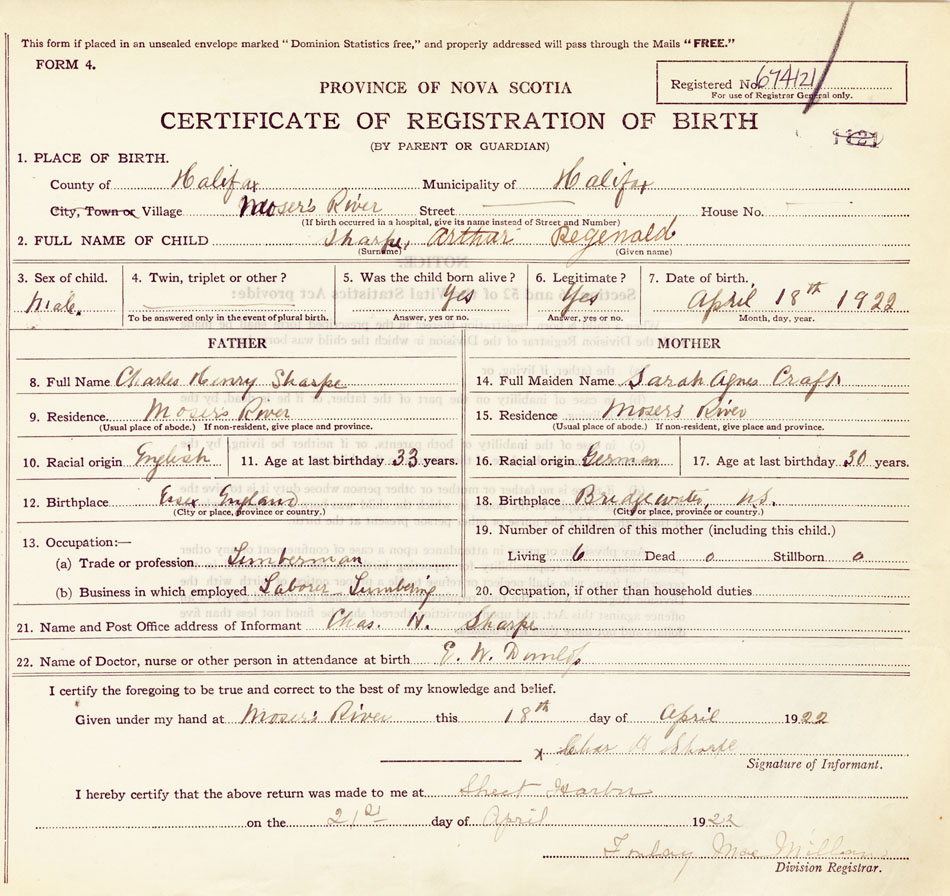 This form if placed in an unsealed envelope marked "Dominion Statistics free," and properly addressed will pass through the Mails "FREE."
FORM 4.
Registered No. 674121
For use of Registrar General only.
PROVINCE OF NOVA SCOTIA
CERTIFICATE OF REGISTRATION OF BIRTH
(BY PARENT OR GUARDIAN)
1. PLACE OF BIRTH.
County of Halifax Municipality of Halifax
City, Town or Village Moser's River Street House No.
(If birth occurred in a hospital, give its name instead of Street and Number)
2. FULL NAME OF CHILD Sharpe, Arthur Regenald
(Surname) (Given name)
3. Sex of child. 4. Twin, triplet or other? 5. Was the child born alive? 6. Legitimate? 7. Date of birth,
Male. Yes Yes April 18th 1922
To be answered only in the event of plural birth. Answer, yes or no. Answer, yes or no. Month, day, year.
FATHER MOTHER
8. Full Name Charles Henry Sharpe 14. Full Maiden Name Sarah Agnes Craft
9. Residence Moser's River 15. Residence Moser's River
(Usual place of abode.) If non-resident, give place and province. (Usual place of abode.) If non-resident, give place and province.
10. Racial origin English 11. Age at last birthday 33 years. 16. Racial origin German 17. Age at last birthday 30 years.
12. Birthplace Essex England 18. Birthplace Bridgewater, N.S.
(City or place, province or country.) (City or place, province or country.)
19. Number of children of this mother (including this child.)
13. Occupation:—
(a) Trade or profession Lumberman Living 6 Dead 0 Stillborn 0
(b) Business in which employed Laborer Lumbering 20. Occupation, if other than household duties
21. Name and Post Office address of Informant Chas. H. Sharpe
22. Name of Doctor, nurse or other person in attendance at birth E. W. Dunlop
I certify the foregoing to be true and correct to the best of my knowledge and belief.
Given under my hand at Moser's River this 18th day of April 1922
x Chas H Sharpe
Signature of Informant.
I hereby certify that the above return was made to me at Sheet Harbor
on the 21st day of April 1922
Mac Millan
Division Registrar.